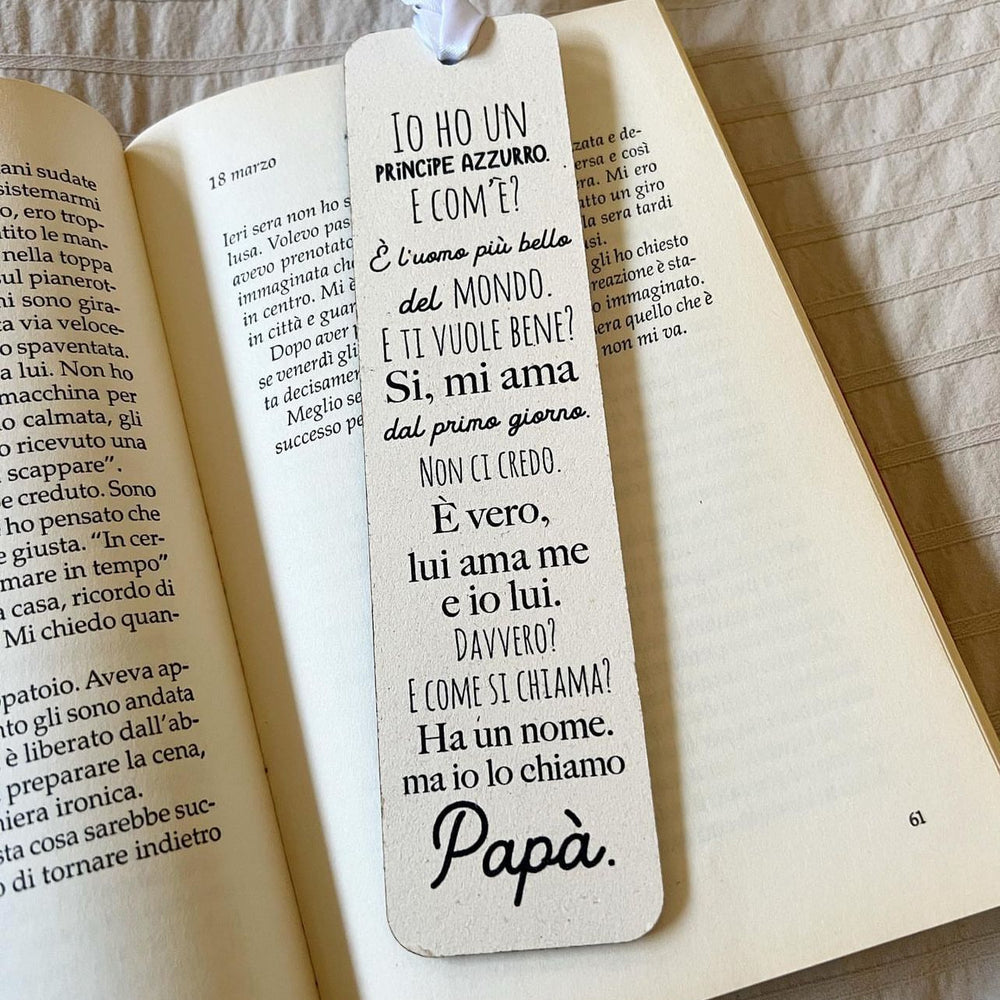 ani sudate
sistemarmi
o, ero trop-
tito le man-
nella toppa
sul pianerot-
ni sono gira-
ta via veloce-
o spaventata.
a lui. Non ho
macchina per
o calmata, gli
o ricevuto una
scappare”.
se creduto. Sono
ho pensato che
e giusta. “In cer-
mare in tempo”
a casa, ricordo di
Mi chiedo quan-
opatoio. Aveva ap-
nto gli sono andata
è liberato dall’ab-
preparare la cena,
niera ironica.
sta cosa sarebbe suc-
o di tornare indietro
18 marzo
Ieri sera non ho s
lusa. Volevo pas
avevo prenotato
immaginata che
in centro. Mi è
in città e guar
Dopo aver p
se venerdì gli
ta decisamen
Meglio se
successo pe
IO HO UN
PRINCIPE AZZURRO.
E COM'È?
È l'uomo più bello
del MONDO.
E TI VUOLE BENE?
Si, mi ama
dal primo giorno.
NON CI CREDO.
È vero,
lui ama me
e io lui.
DAVVERO?
E COME SI CHIAMA?
Ha un nome.
ma io lo chiamo
Papà.
zata e de-
ersa e così
ra. Mi ero
tto un giro
la sera tardi
si.
gli ho chiesto
reazione è sta-
o immaginato.
sera quello che è
non mi va.
61